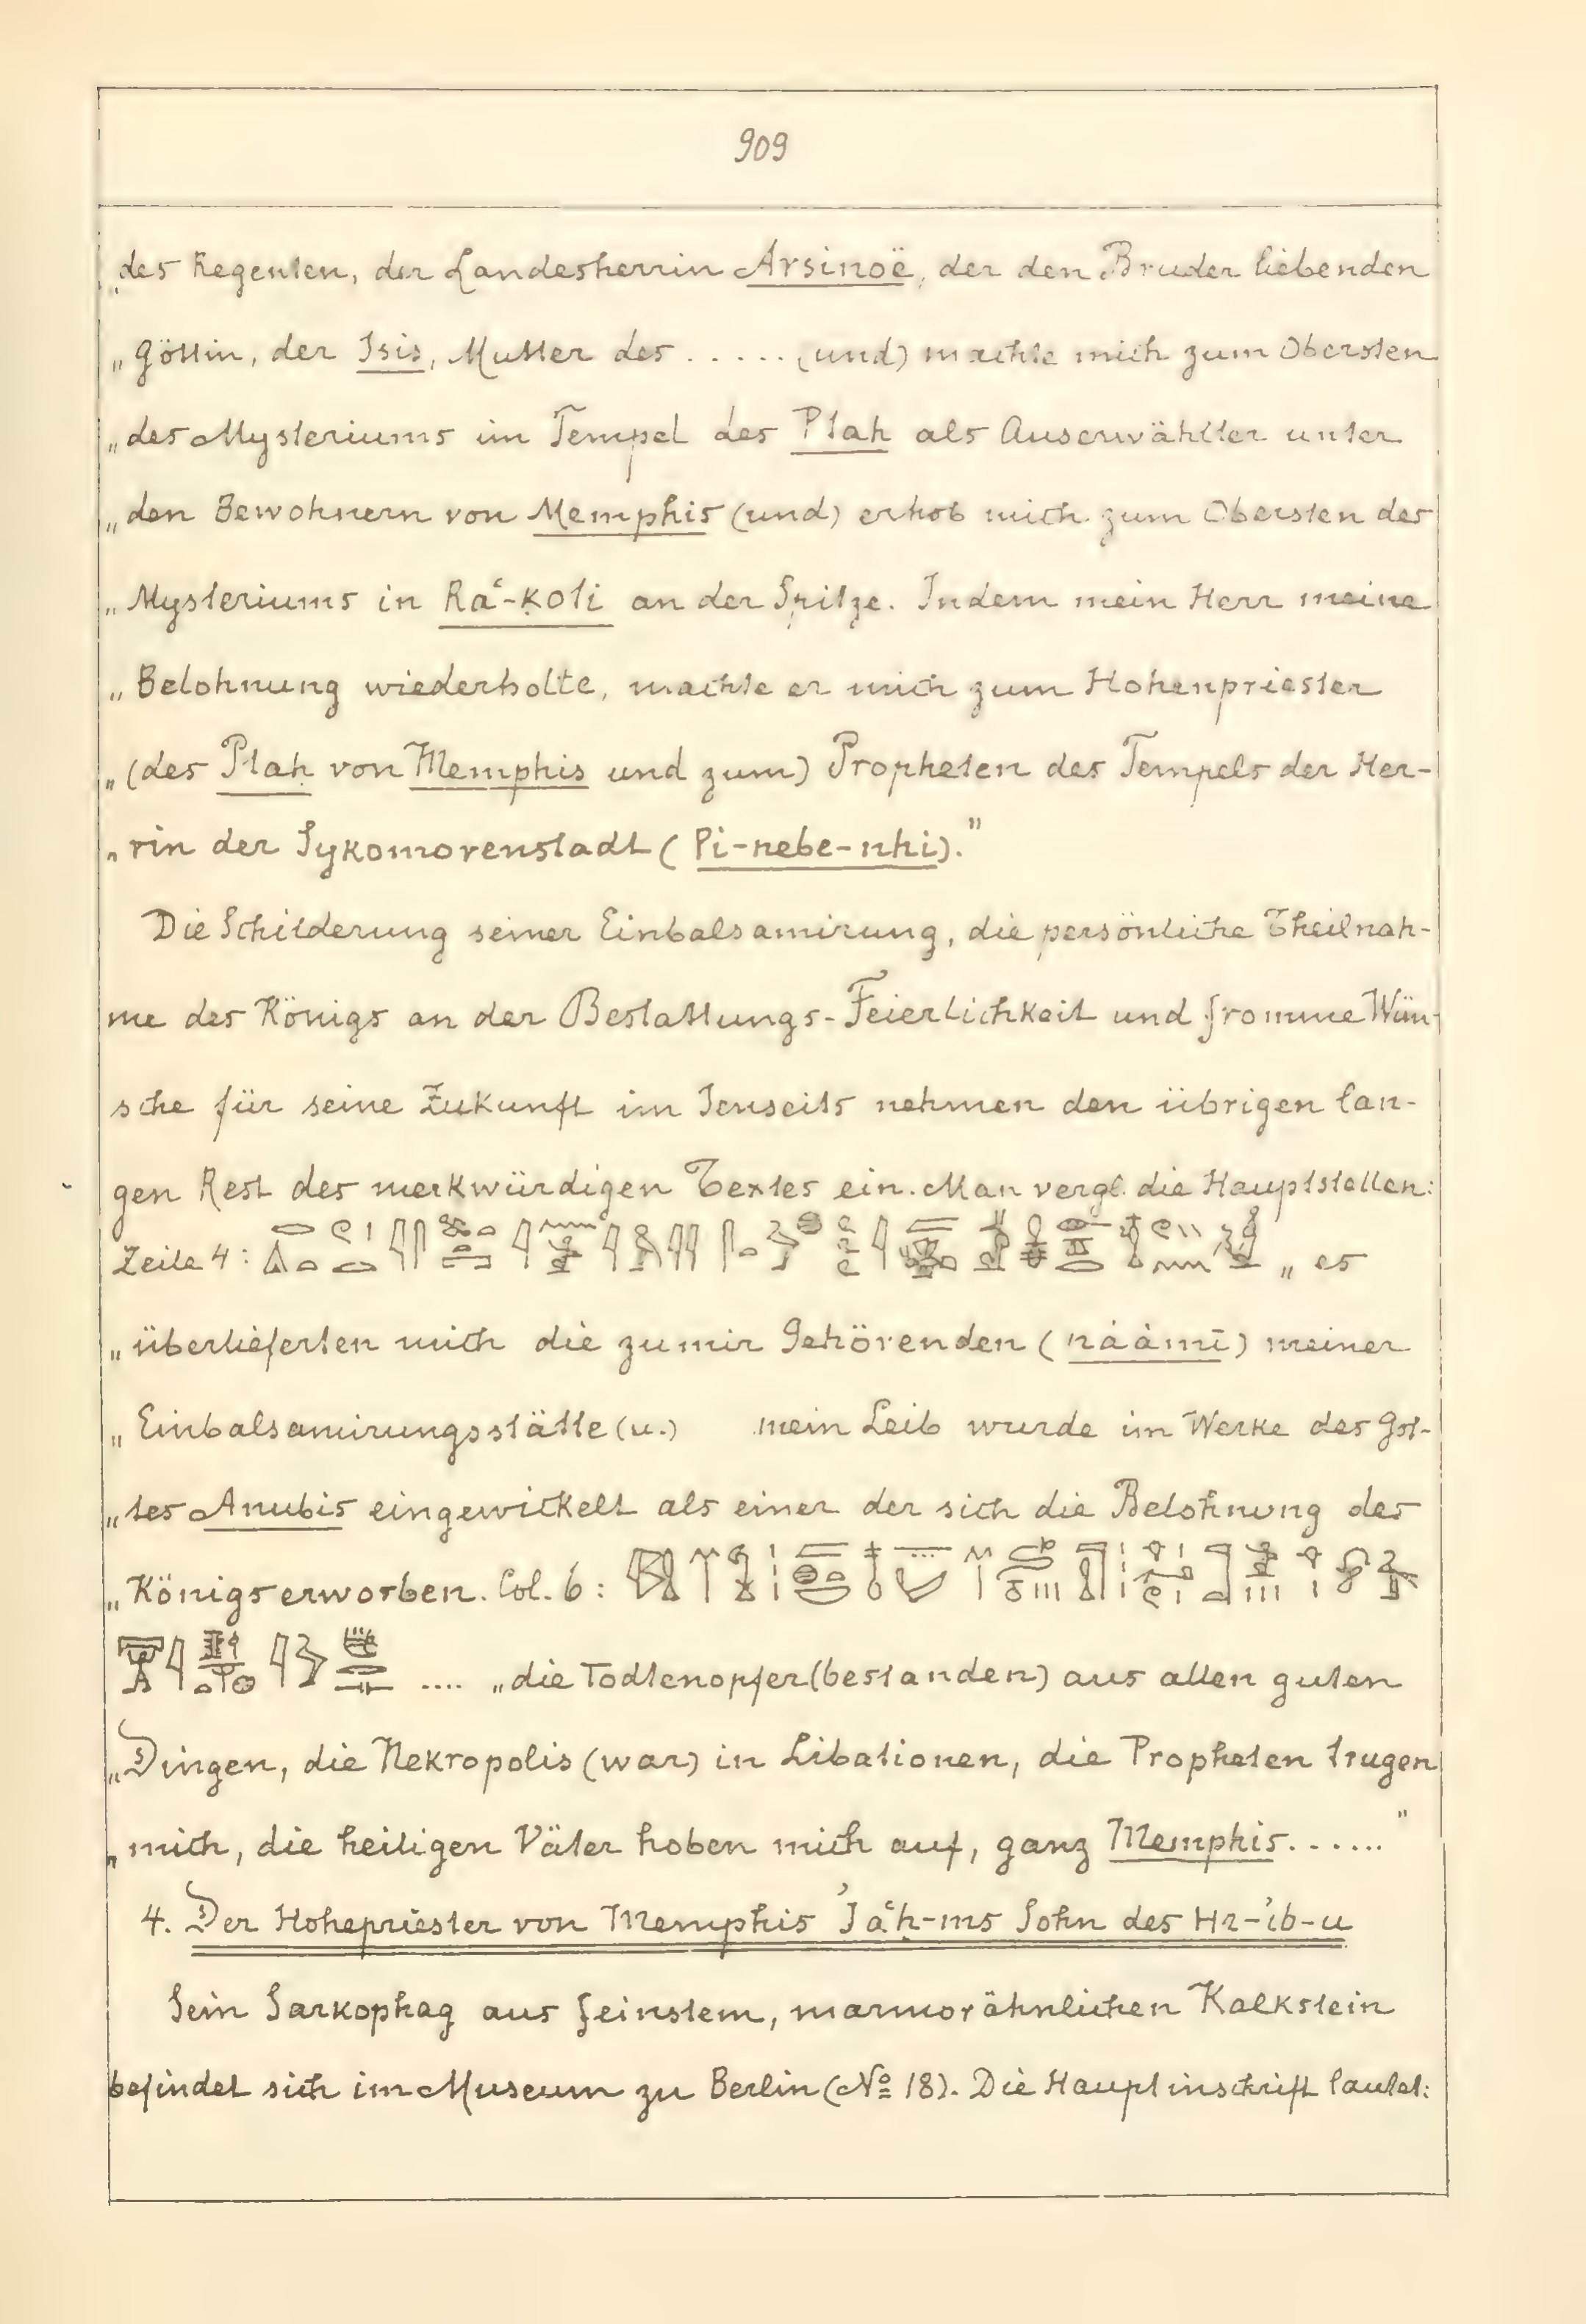 909
„des Regenten, der Landesherrin Arsinoë, der den Bruder liebenden
„Göttin, der Isis, Mutter des ..... (und) machte mich zum Obersten
„des Mysteriums im Tempel des Ptaḥ als Auserwählter unter
„den Bewohnern von Memphis (und) erhob mich zum Obersten des
„Mysteriums in Raʿ-ḳoti an der Spitze. Indem mein Herr meine
„Belohnung wiederholte, machte er mich zum Hohenpriester
„(des Ptaḥ von Memphis und zum) Propheten des Tempels der Her-
„rin der Sykomorenstadt (Pi-nebe-nhi)."
Die Schilderung seiner Einbalsamirung, die persönliche Theilnah-
me des Königs an der Bestattungs-Feierlichkeit und fromme Wün-
sche für seine Zukunft im Jenseits nehmen den übrigen lan-
gen Rest des merkwürdigen Textes ein. Man vergl. die Hauptstellen:
Zeile 4: „es
„überlieferten mich die zu mir Gehörenden (náàmī) meiner
„Einbalsamirungsstätte (u.) mein Leib wurde im Werke des Got-
„tes Anubis eingewickelt als einer der sich die Belohnung des
„Königs erworben. Col. 6:
.... „die Todtenopfer (bestanden) aus allen guten
„Dingen, die Nekropolis (war) in Libationen, die Propheten trugen
„mich, die heiligen Väter hoben mich auf, ganz Memphis......"
4. Der Hohepriester von Memphis ʾJaʿḥ-ms Sohn des Hr-ʾib-u
Sein Sarkophag aus feinstem, marmorähnlichen Kalkstein
befindet sich im Museum zu Berlin (№ 18). Die Hauptinschrift lautet: